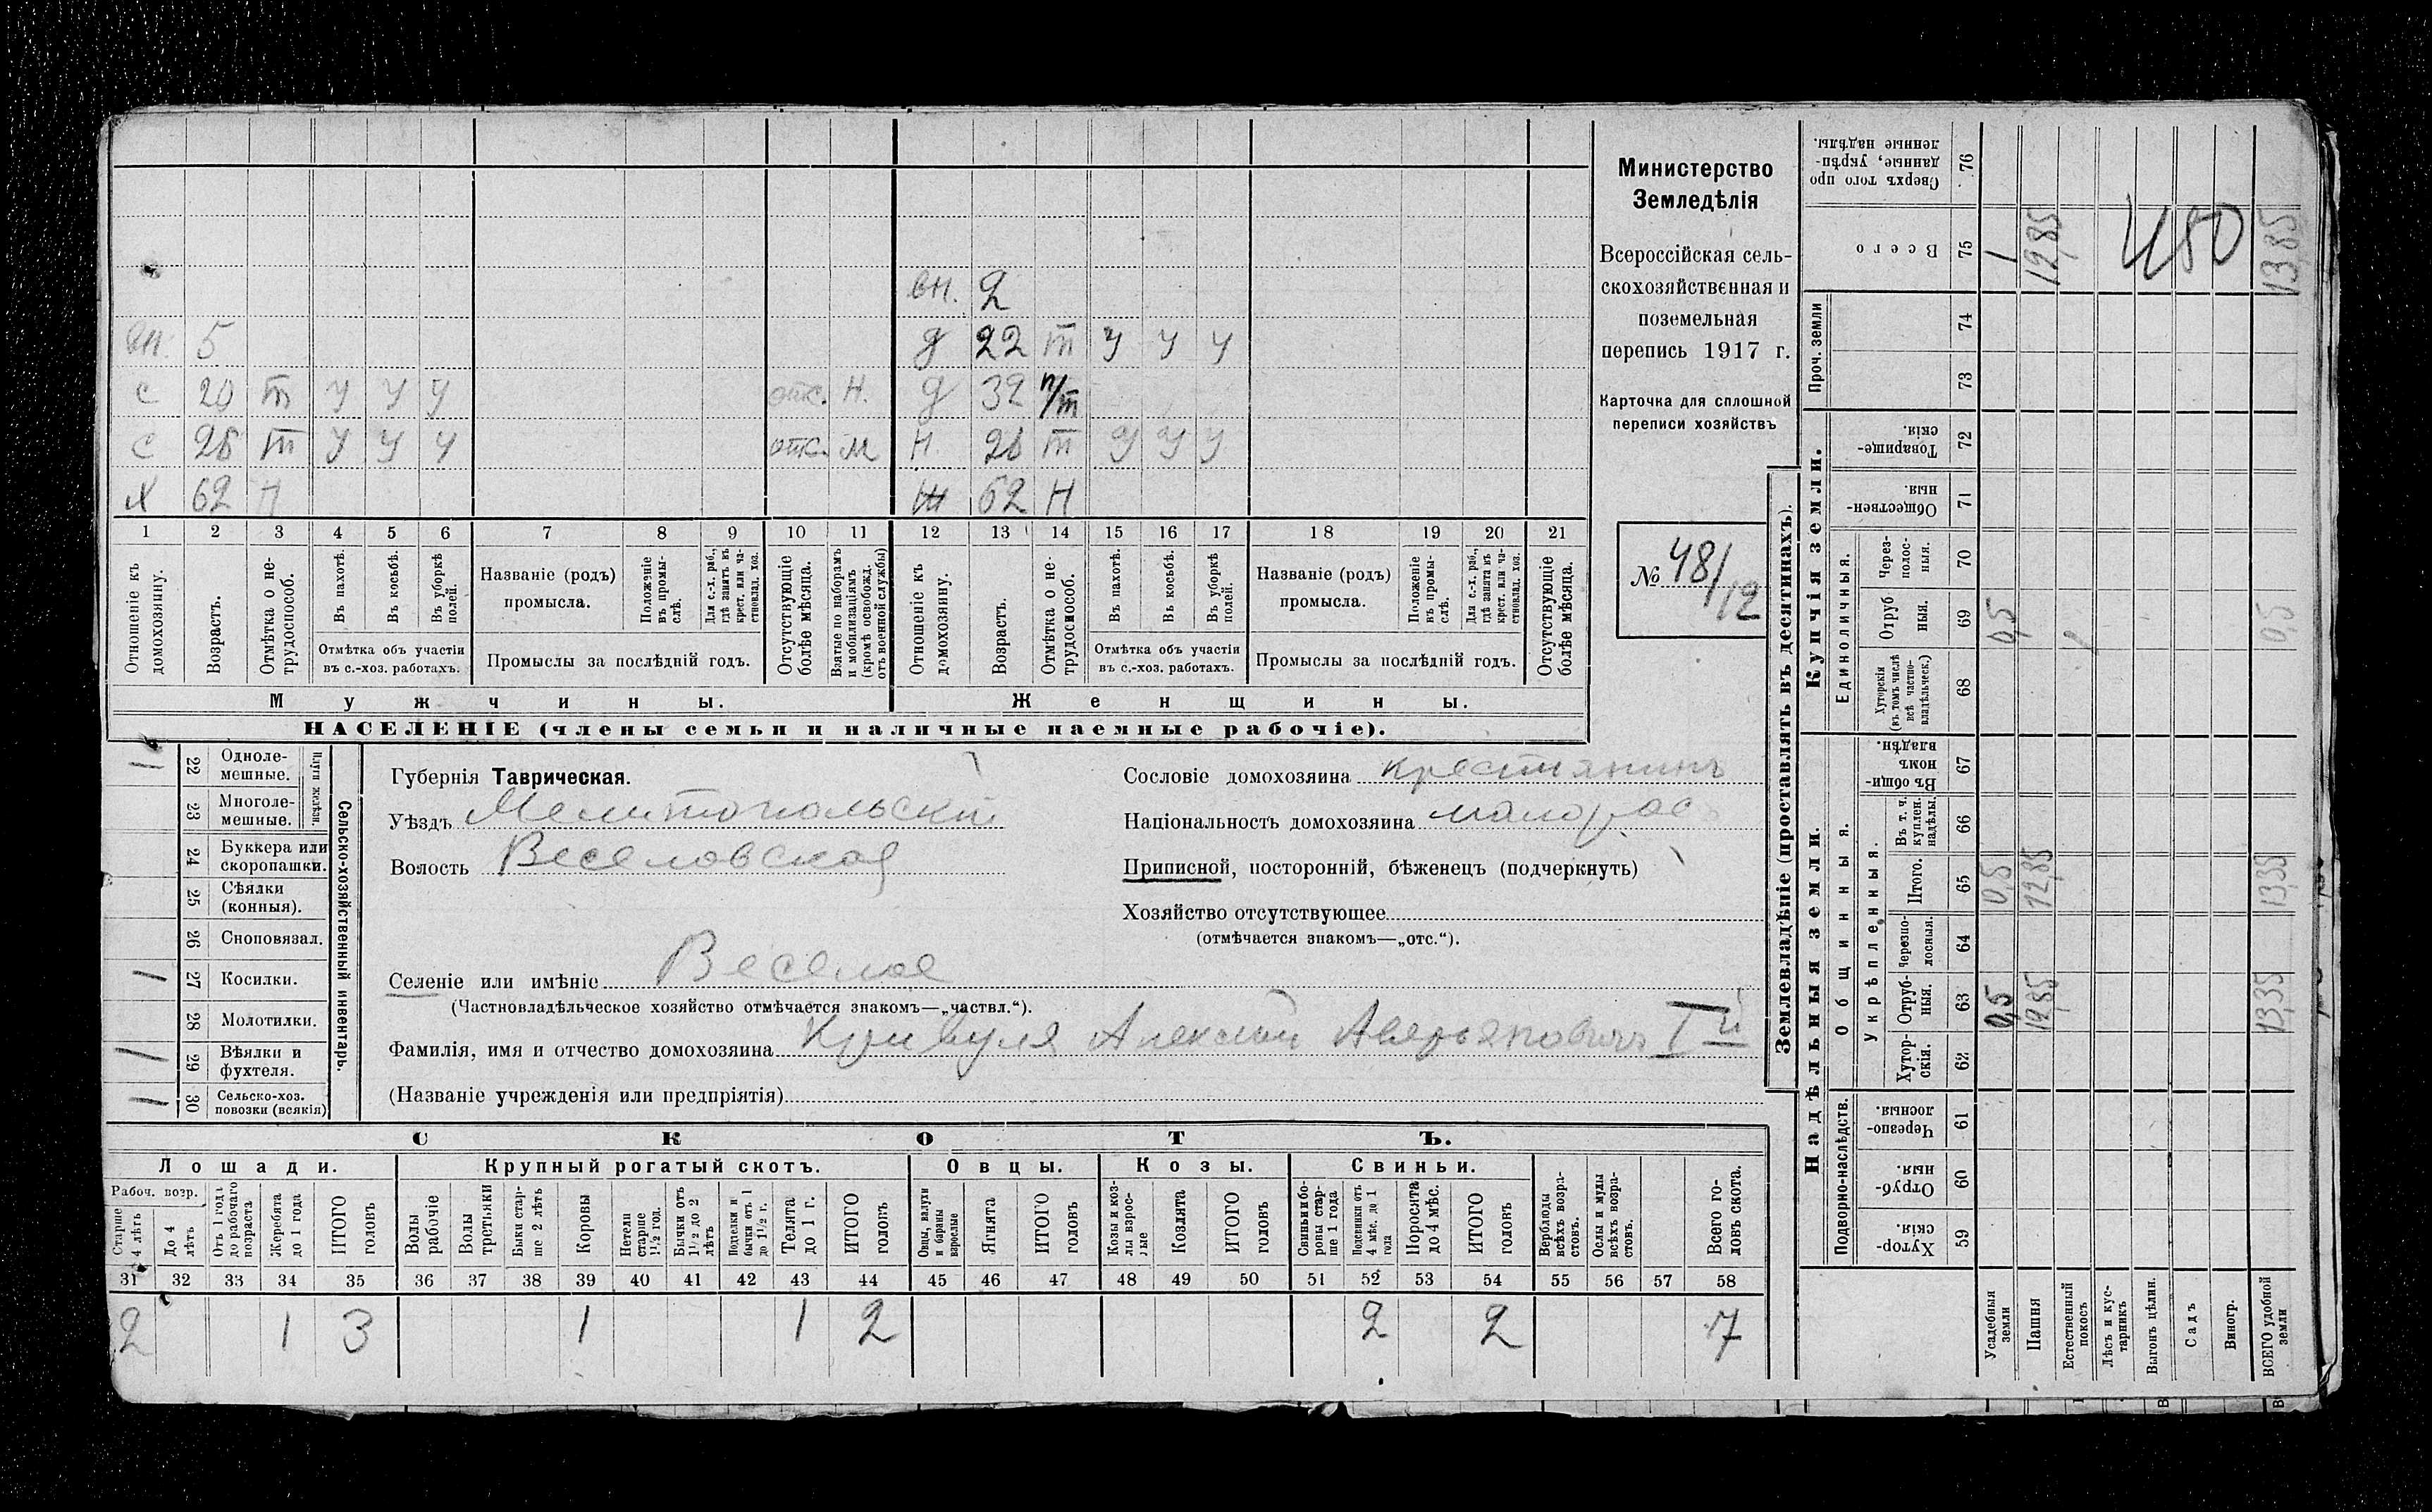 вн. 2
вн. 5 д 22 т у у у
с 20 т у у у отс. н. д 32 п/т
с 26 т у у у отс. м н. 26 т у у у
х 62 н ж 62 н
1 2 3 4 5 6 7 8 9 10 11 12 13 14 15 16 17 18 19 20 21
Отношеніе къ домохозяину.
Возрастъ.
Отмѣтка о не-
трудоспособ.
Въ пахотѣ.
Въ косьбѣ.
Въ уборкѣ полей.
Отмѣтка объ участіи
въ с.-хоз. работахъ.
Названіе (родъ)
промысла.
Положеніе въ промы-
слѣ.
Для с.-х. раб.,
гдѣ занятъ въ
крест. или ча-
стновлад. хоз.
Промыслы за послѣдній годъ.
Отсутствующіе
болѣе мѣсяца.
Взятые по наборамъ
и мобилизаціямъ
(кромѣ освобожд.
отъ военной службы)
Отношеніе къ
домохозяину.
Возрастъ.
Отмѣтка о не-
трудоспособ.
Въ пахотѣ.
Въ косьбѣ.
Въ уборкѣ полей.
Отмѣтка объ участіи
въ с.-хоз. работахъ.
Названіе (родъ)
промысла.
Положеніе въ промы-
слѣ.
Для с.-х. раб.,
гдѣ занята въ
крест. или ча-
стновлад. хоз.
Промыслы за послѣдній годъ.
Отсутствующіе
болѣе мѣсяца.
Мужчины. Женщины.
НАСЕЛЕНІЕ (члены семьи и наличные наемные рабочіе).
Министерство
Земледѣлія
Всероссійская сель-
скохозяйственная и
поземельная
перепись 1917 г.
Карточка для сплошной
переписи хозяйствъ
№ 48/12
1 22 Одноле-
мешные.
23 Многоле-
мешные.
Плуги желѣзн.
24 Буккера или
скоропашки.
25 Сѣялки
(конныя).
26 Сноповязал.
1 27 Косилки.
28 Молотилки.
1 29 Вѣялки и
фухтеля.
1 30 Сельско-хоз.
повозки (всякія)
Сельско-хозяйственный инвентарь.
Губернія Таврическая.
Уѣздъ Мелитопольскій
Волость Веселовская
Селеніе или имѣніе Веселое
(Частновладѣльческое хозяйство отмѣчается знакомъ—„частвл.“).
Фамилія, имя и отчество домохозяина Кривуля Алексей Аверьяновичъ Iй
(Названіе учрежденія или предпріятія)
Сословіе домохозяина крестьянинъ
Національность домохозяина малорос
Приписной, посторонній, бѣженецъ (подчеркнуть)
Хозяйство отсутствующее
(отмѣчается знакомъ—„отс.“).
СКОТЪ.
Лошади. Крупный рогатый скотъ. Овцы. Козы. Свиньи.
Рабоч. возр.
Старше 4 лѣтъ
До 4 лѣтъ
Отъ 1 года
до рабочаго
возраста
Жеребята
до 1 года
ИТОГО
головъ
Волы
рабочіе
Волы
третьяки
Быки стар-
ше 2 лѣтъ
Коровы
Нетели
старше
1½ год.
Бычки отъ
1½ до 2
лѣтъ
Подтелки и
бычки отъ 1
до 1½ г.
Телята
до 1 г.
ИТОГО
головъ
Овцы, валухи
и бараны
взрослые
Ягнята
ИТОГО
головъ
Козы и коз-
лы взрос-
лые
Козлята
ИТОГО
головъ
Свиньи и бо-
ровы стар-
ше 1 года
Подсвинки отъ
4 мѣс. до 1
года
Поросята
до 4 мѣс.
ИТОГО
головъ
Верблюды
всѣхъ возра-
стовъ.
Ослы и мулы
всѣхъ возра-
стовъ.
Всего го-
ловъ скота.
31 32 33 34 35 36 37 38 39 40 41 42 43 44 45 46 47 48 49 50 51 52 53 54 55 56 57 58
2 1 3 1 1 2 2 2 7
Землевладѣніе (проставлять въ десятинахъ).
Надѣльныя земли. Купчія земли.
Подворно-наслѣдств.
Общинныя.
Укрѣпленныя.
Единоличныя.
Проч. земли
Сверхъ того про
данные, укрѣп-
ленные надѣлы. 76
Всего 75
74
73
Товарище-
скія. 72
Обществен-
ныя. 71
Через-
полос-
ныя. 70
Отруб
ныя. 69
Хуторскія
(въ томъ числѣ
всѣ частно-
владѣльческ.) 68
Въ общин-
номъ
владѣн. 67
Въ т. ч.
куплен.
надѣлы. 66
Итого. 65
Черезпо-
лосныя. 64
Отруб-
ныя. 63
Хутор-
скія. 62
Черезпо-
лосныя. 61
Отруб-
ныя. 60
Хутор-
скія. 59
Усадебныя
земли 0,5 0,5 0,5 1
Пашня 12,85 12,85 12,85
Естественный
покосъ
Лѣсъ и кус-
тарникъ
Выгонъ цѣлин.
Садъ
Виногр.
ВСЕГО удобной
земли 13,35 13,35 0,5 13,85
480